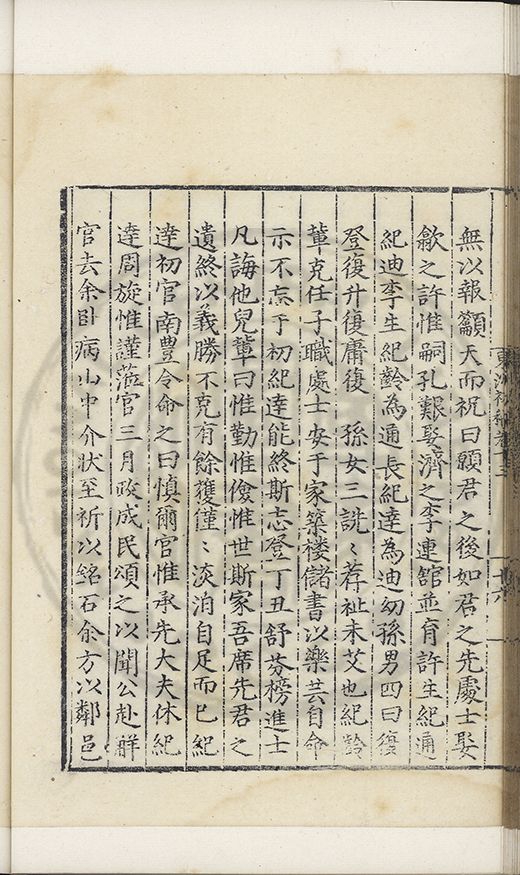 無以報籲天而祝曰願君之後如君之先處士娶
歙之許惟嗣孔艱娶濟之李連舘並育許生紀通
紀迪李生紀齡為通長紀達為迪幼孫男四曰復
登復升復庸復 孫女三詵〻荐祉未艾也紀齡
輩克任子職處士安于家築楼儲書以樂芸自命
示不忘于初紀達能終斯志登丁丑舒芬榜進士
凡誨他兒輩曰惟勤惟儉惟世斯家吾席先君之
遺終以義勝不克有餘獲僅〻淡泊自足而已紀
達初官南豊令命之曰慎爾官惟承先大夫休紀
達周旋惟謹蒞官三月政成民頌之以聞公赴解
官去余卧病山中介狀至祈以銘石余方以鄰邑
十六